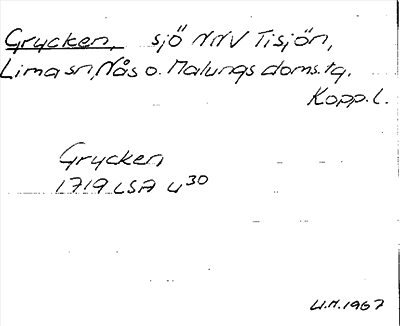 Grycken, sjö NNV Tisjön,
Lima sn, Nås o. Malungs doms. tg.
Kopp. l.
Grycken
1719 LSA U30
U.M. 1967